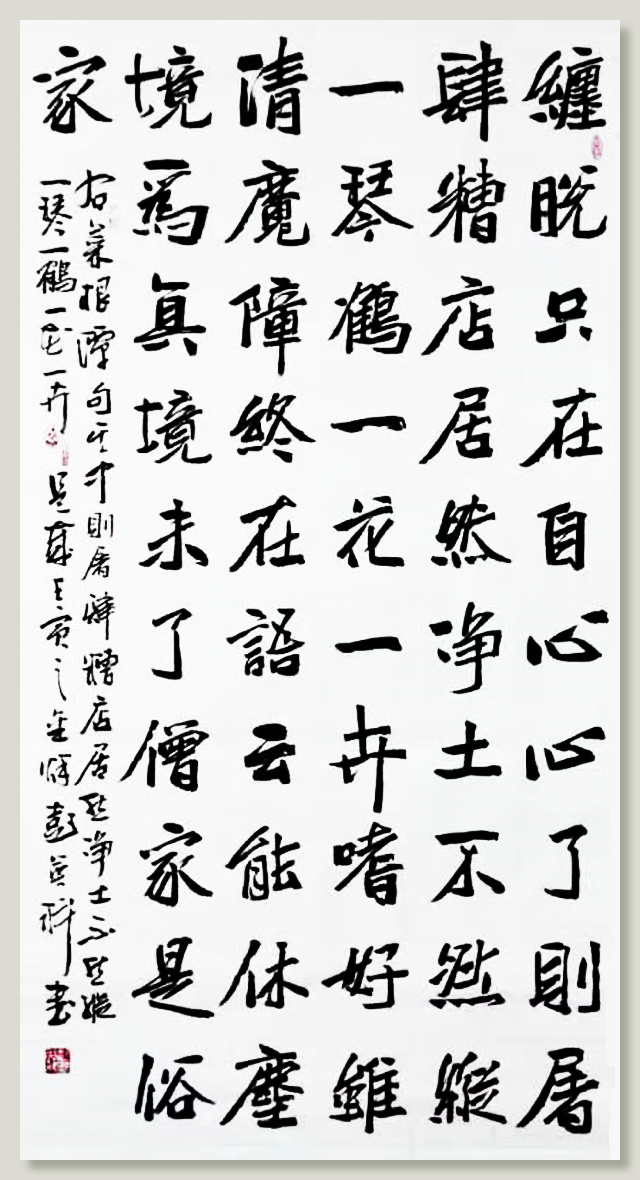 纏脫只在自心心了則屠
肆糟店居然淨土不然縱
一琴鶴一花一卉嗜好雖
清魔障終在語云能休塵
境爲真境未了僧家是俗
家
右菜根潭句其中則屠肆糟店居然淨土不然縱
一琴一鶴一花一卉是歲壬寅之金秋彭英科書